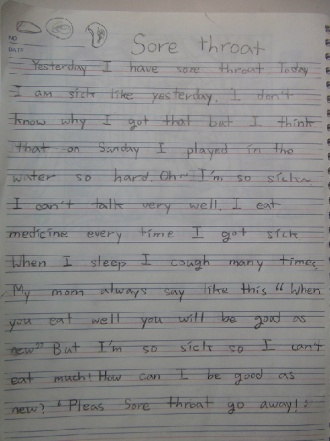 NO
DATE
Sore throat
Yesterday I have sore throut Today
I am sick like yesterday. I don't
know why I got that but I think
that on Sunday I played in the
water so hard. Oh~ I'm so sick~
I can't talk very well. I eat
medicine every time I got sick
When I sleep I cough many times
My mom always say like this "When
you eat well you will be good as
new" But I'm so sick so I can't
eat much! How can I be good as
new? "Pleas Sore throat go away!